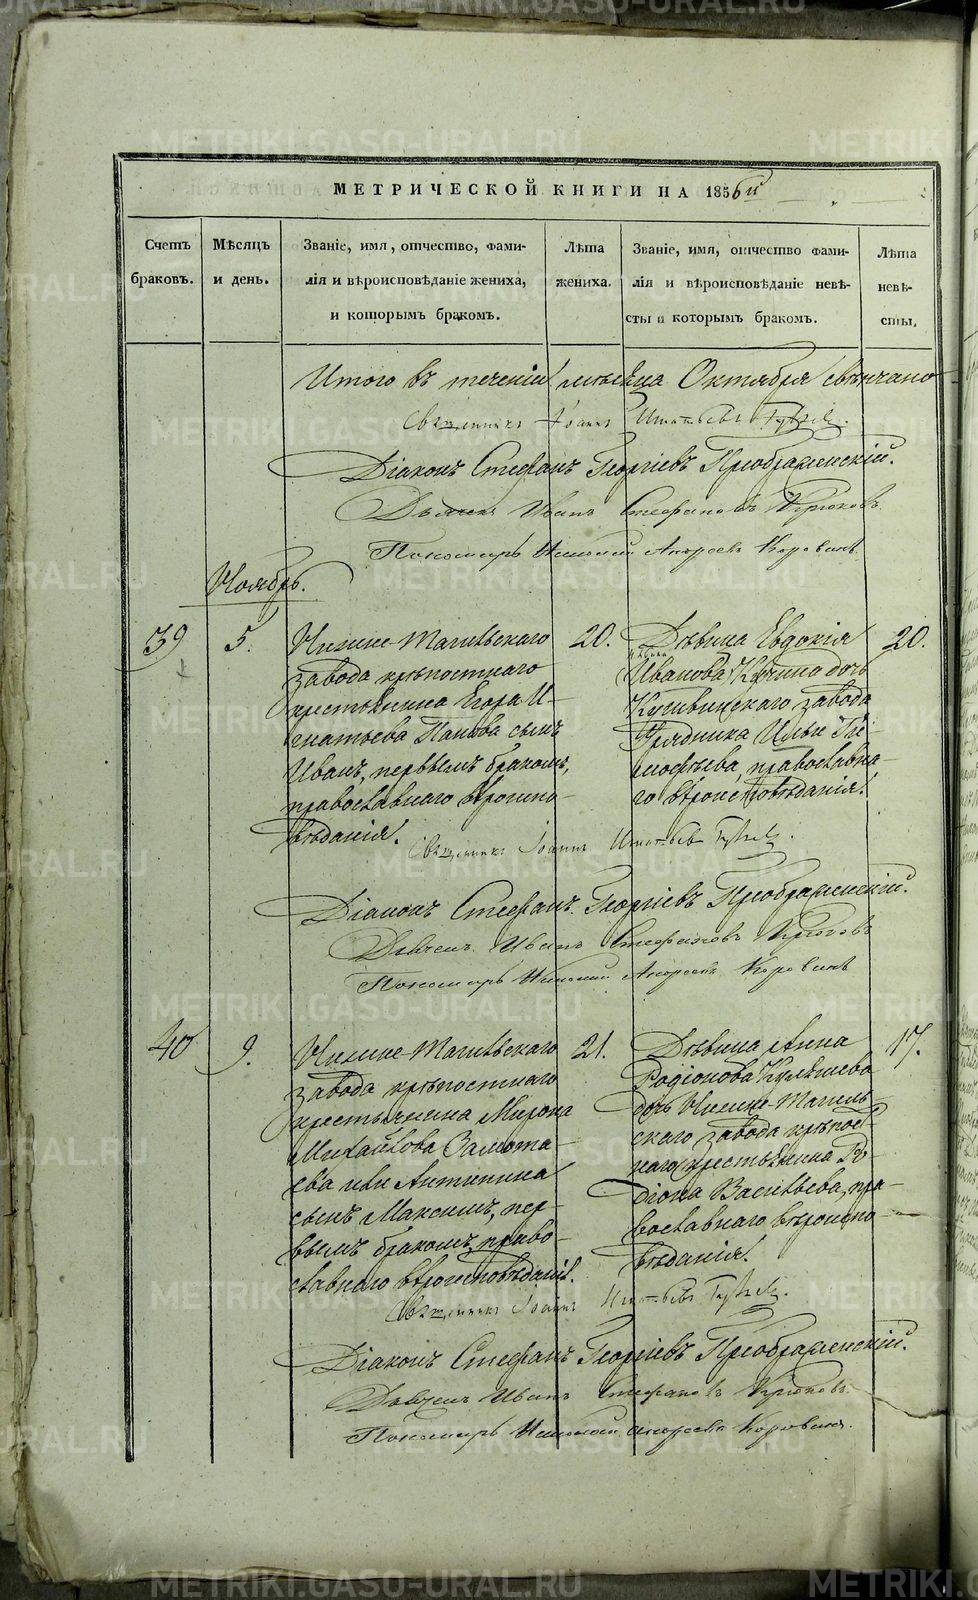 МЕТРИЧЕСКОЙ КНИГИ НА 1856й
Счетъ браковъ.
Мѣсяцъ и день.
Званіе, имя, отчество, фами-
лія и вѣроисповѣданіе жениха,
и которымъ бракомъ.
Лѣта жениха.
Званіе, имя, отчество фами-
лія и вѣроисповѣданіе невѣ-
сты и которымъ бракомъ.
Лѣта невѣ-
сты.
Итого въ теченіи мѣсяца Октября свѣнчано
Священникъ Іоаннъ Игнатьевъ
Діаконъ Стефанъ Георгіевъ Преображенскій.
Дьячекъ Иванъ Стефановъ Крюковъ.
Пономарь Николай Андреевъ Коровинъ.
Ноябрь.
39
5.
Нижне-Тагильскаго
завода крѣпостнаго
крестьянина Егора И-
гнатьева Попова сынъ
Иванъ, первымъ бракомъ,
православнаго вѣроиспо-
вѣданія.
20.
Дѣвица Евдокія
Иванова дочь
Кушвинскаго завода
Урядника Ильи Ти-
мофѣева, православна-
го вѣроисповѣданія.
20.
Священникъ Іоаннъ Игнатьевъ
Діаконъ Стефанъ Георгіевъ Преображенскій.
Дьячекъ Иванъ Стефановъ Крюковъ
Пономарь Николай Андреевъ Коровинъ
40
9.
Нижне-Тагильскаго
завода крѣпостнаго
крестьянина Мирона
Михайлова Замота-
ева или Антипина
сынъ Максимъ, пер-
вымъ бракомъ, право-
славнаго вѣроисповѣданія.
21.
Дѣвица Анна
Родіонова Кулишева
дочь Нижне-Тагиль-
скаго завода крѣпост-
наго крестьянина Ро-
діона Васильева, пра-
вославнаго вѣроиспо-
вѣданія.
17.
Священникъ Іоаннъ Игнатьевъ
Діаконъ Стефанъ Георгіевъ Преображенскій.
Дьячекъ Иванъ Стефановъ Крюковъ.
Пономарь Николай Андреевъ Коровинъ.
METRIKI.GASO-URAL.RU